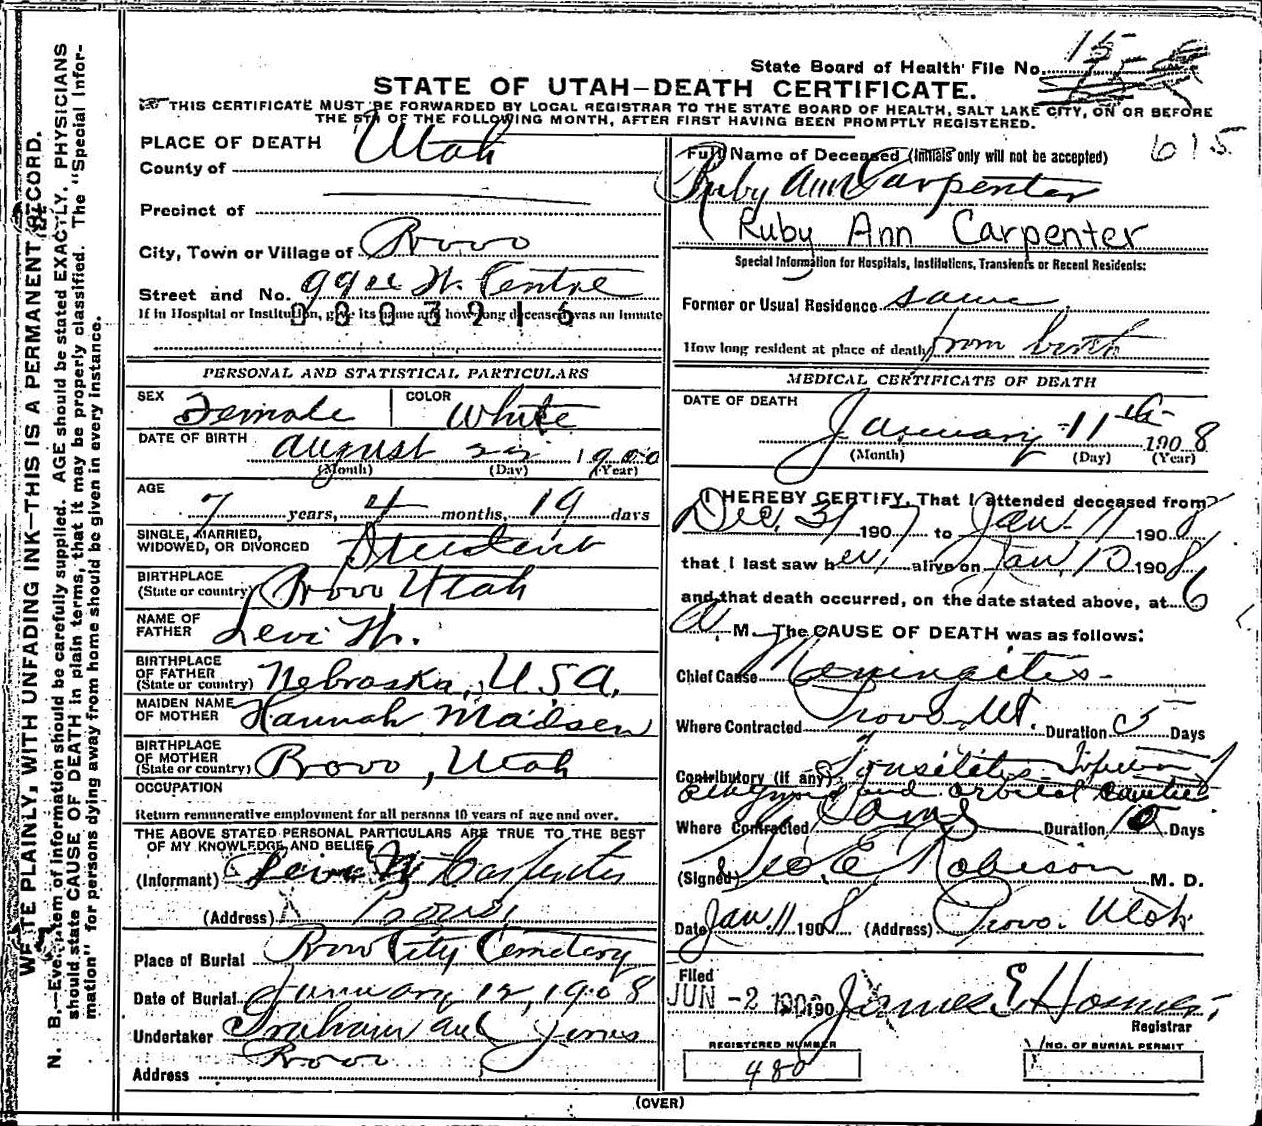 WRITE PLAINLY, WITH UNFADING INK—THIS IS A PERMANENT RECORD.
N. B.—Every item of information should be carefully supplied. AGE should be stated EXACTLY. PHYSICIANS
should state CAUSE OF DEATH in plain terms, that it may be properly classified. The "Special Infor-
mation" for persons dying away from home should be given in every instance.
State Board of Health File No. 15
STATE OF UTAH—DEATH CERTIFICATE.
THIS CERTIFICATE MUST BE FORWARDED BY LOCAL REGISTRAR TO THE STATE BOARD OF HEALTH, SALT LAKE CITY, ON OR BEFORE
THE 5TH OF THE FOLLOWING MONTH, AFTER FIRST HAVING BEEN PROMPTLY REGISTERED.
615
PLACE OF DEATH
County of Utah
Precinct of
City, Town or Village of Provo
Street and No. W. Centre
If in Hospital or Institution, give its name and how long deceased was an inmate
0003216
PERSONAL AND STATISTICAL PARTICULARS
SEX Female COLOR White
DATE OF BIRTH August 22 1900
(Month) (Day) (Year)
AGE 7 years, 4 months, 19 days
SINGLE, MARRIED,
WIDOWED, OR DIVORCED Student
BIRTHPLACE
(State or country) Provo Utah
NAME OF
FATHER Levi W.
BIRTHPLACE
OF FATHER
(State or country) Nebraska, USA.
MAIDEN NAME
OF MOTHER Hannah Madsen
BIRTHPLACE
OF MOTHER
(State or country) Provo, Utah
OCCUPATION
Return remunerative employment for all persons 10 years of age and over.
THE ABOVE STATED PERSONAL PARTICULARS ARE TRUE TO THE BEST
OF MY KNOWLEDGE AND BELIEF
(Informant) Levi W Carpenter
(Address) Provo
Place of Burial Provo City Cemetery
Date of Burial January 12, 1908
Undertaker Graham and Jones
Address Provo
Full Name of Deceased (Initials only will not be accepted)
Ruby Ann Carpenter
Ruby Ann Carpenter
Special Information for Hospitals, Institutions, Transients or Recent Residents:
Former or Usual Residence same
How long resident at place of death from birth
MEDICAL CERTIFICATE OF DEATH
DATE OF DEATH
January 11th 1908
(Month) (Day) (Year)
I HEREBY CERTIFY, That I attended deceased from
Dec. 31 1907 to Jan. 11 1908
that I last saw her alive on Jan. 10 1908
and that death occurred, on the date stated above, at 6
A. M. The CAUSE OF DEATH was as follows:
Chief Cause Meningitis
Where Contracted Provo Ut. Duration 5 Days
Contributory (if any) Tonsilitis
and orbital
Where Contracted Same Duration 10 Days
(Signed) Geo. E Robison M. D.
Date Jan 11 1908 (Address) Provo. Utah
Filed
JUN -2 1908 190 James E Hosmer,
Registrar
REGISTERED NUMBER
480
NO. OF BURIAL PERMIT
(OVER)